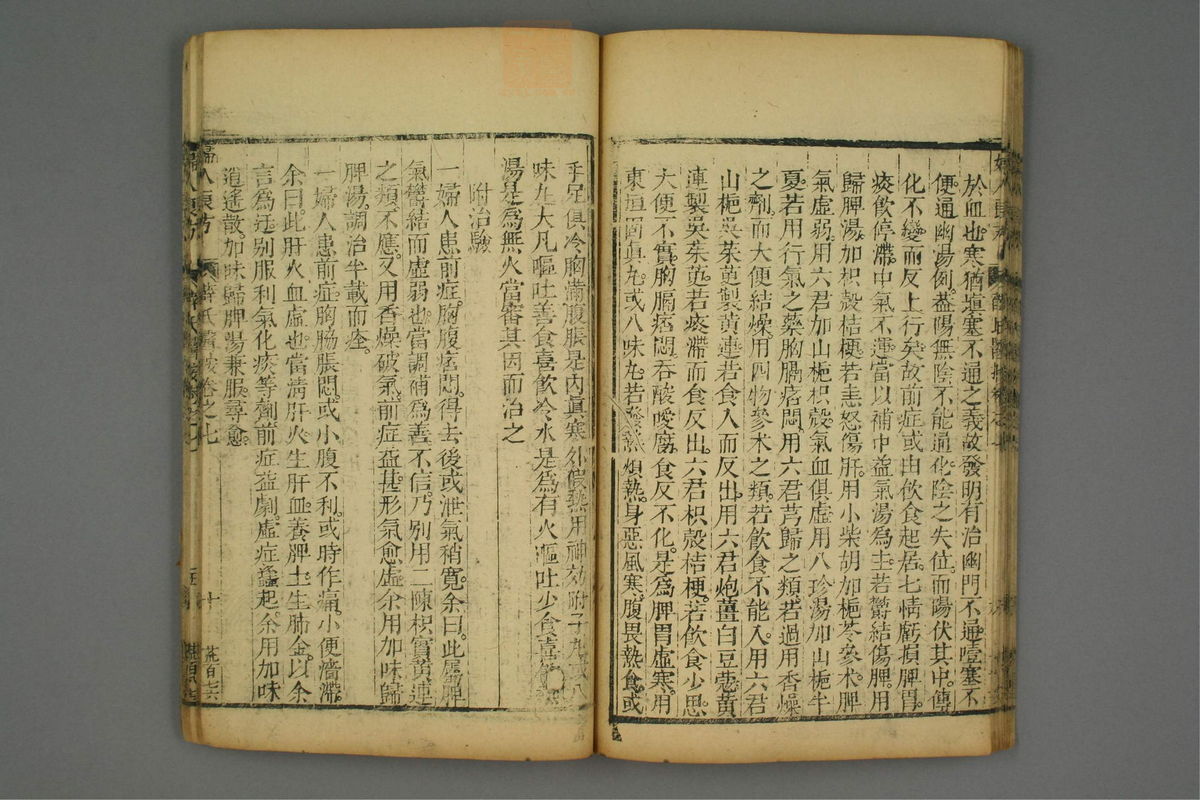 於血也寒猶壅塞不通之義故發明有治幽門不通噎塞不
便通幽湯例葢陽無陰不能通化陰之失位而陽伏其中傳
化不變而反上行矣故前症或由飲食起居七情虧損脾胃
痰飲停滯中氣不運當以補中益氣湯為主若鬱結傷脾用
歸脾湯加枳殼桔梗若恚怒傷肝用小柴胡加梔苓參术脾
氣虛弱用六君加山梔枳殼氣血俱虛用八珍湯加山梔半
夏若用行氣之藥胸膈痞悶用六君芎歸之類若過用香燥
之劑而大便結燥用四物參术之類若飲食不能入用六君
山梔吳茱萸製黃連若食入而反出用六君炮薑白豆蔻黃
連製吳茱萸若痰滯而食反出六君枳殼桔梗若飲食少思
大便不實胸膈痞悶吞酸噯腐食反不化是為脾胃虛寒用
東垣固真丸或八味丸若發熱煩熱身惡風寒腹畏熱食或
手足俱冷胸滿腹脹是內真寒外假熱用神効附子丸或八
味丸大凡嘔吐善食喜飲冷水是為有火嘔吐少食喜
湯是為無火當審其因而治之
附治驗
一婦人患前症胸腹痞悶得去後或泄氣稍寬余曰此屬脾
氣鬱結而虛弱也當調補為善不信乃別用二陳枳實黃連
之類不應又用香燥破氣前症益甚形氣愈虛余用加味歸
脾湯調治半載而痊
一婦人患前症胸脇脹悶或小腹不利或時作痛小便濇滯
余曰此肝火血虛也當淸肝火生肝血養脾土生肺金以余
言為迂別服利氣化痰等劑前症益劇虛症蜂起余用加味
逍遙散加味歸脾湯兼服尋愈
婦人良方 薛氏醫按卷之七